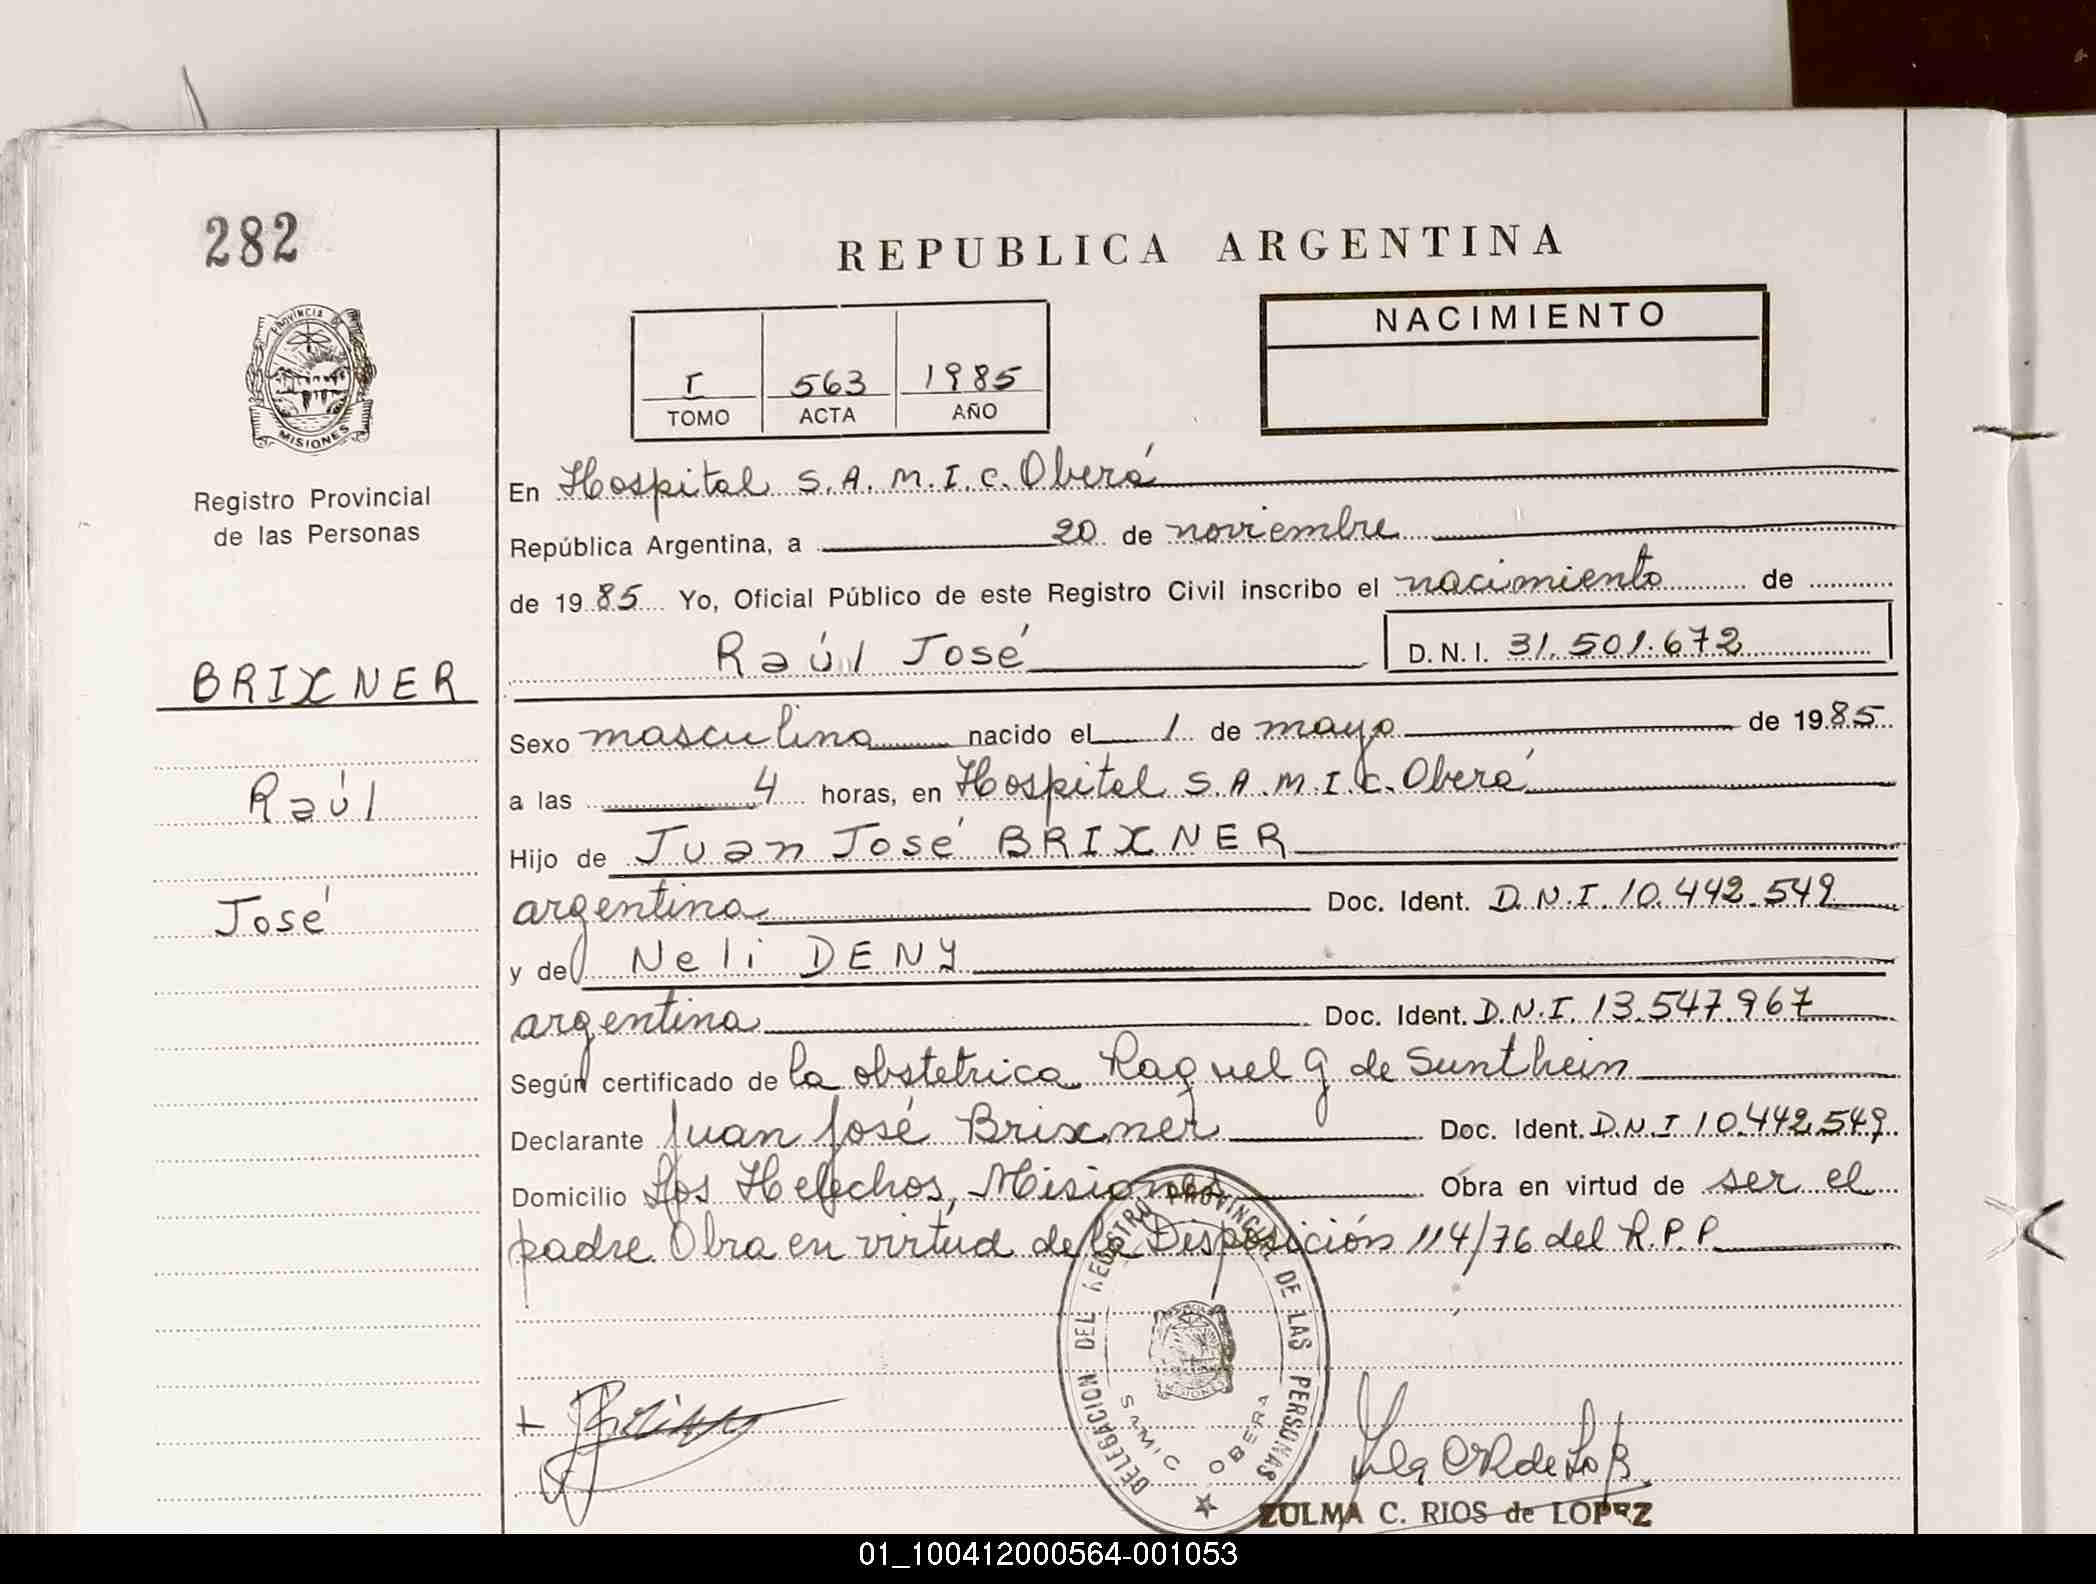 282
PROVINCIA DE
MISIONES
Registro Provincial
de las Personas
BRIXNER
Raúl
José
REPUBLICA ARGENTINA
I 563 1985
TOMO ACTA AÑO
NACIMIENTO
En Hospital S.A.M.I.C. Oberá
República Argentina, a 20 de noviembre
de 1985 Yo, Oficial Público de este Registro Civil inscribo el nacimiento de
Raúl José D.N.I. 31.501.672
Sexo masculino nacido el 1 de mayo de 1985
a las 4 horas, en Hospital S.A.M.I.C. Oberá
Hijo de Juan José BRIXNER
argentina Doc. Ident. D.N.I. 10.442.549
y de Neli DENY
argentina Doc. Ident. D.N.I. 13.547.967
Según certificado de la obstetrica Raquel G de Sunthein
Declarante Juan José Brixner Doc. Ident. D.N.I 10.442.549
Domicilio Los Helechos, Misiones Obra en virtud de ser el
padre. Obra en virtud de la Disposición 114/76 del R.P.P
DELEGACION DEL REGISTRO PROVINCIAL DE LAS PERSONAS
MISIONES
SAMIC OBERA
ZULMA C. RIOS de LOPEZ
01_100412000564-001053